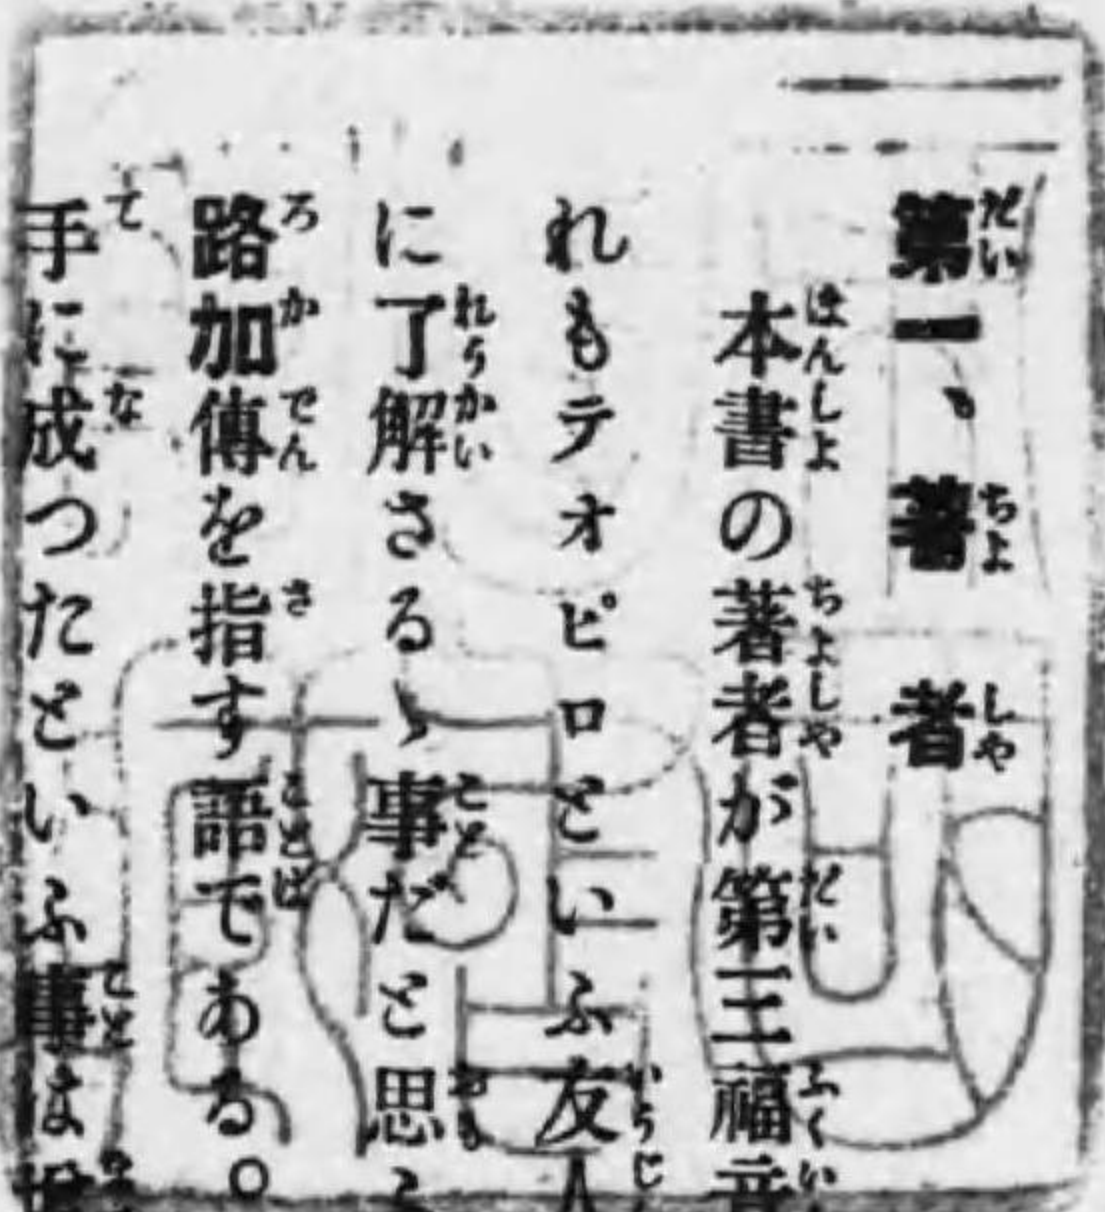 第一、著者
本書の著者が第三福音
れもテオピロといふ友人
に了解さるゝ事だと思
路加傳を指す語である。
手に成つたといふ事は